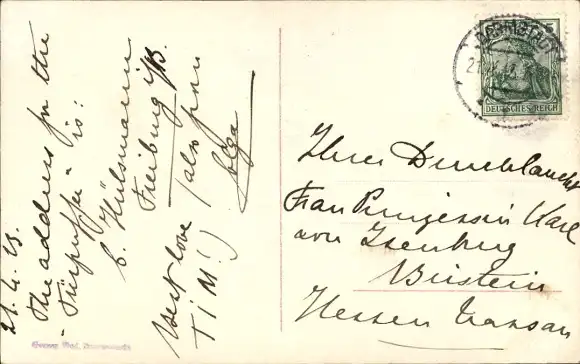 21.4.13.
The address for the
"Türpuffer" is:
C. Hülsmann
Freiburg i/B.
Best love
(also from
TIM!)
Olga
DARMSTADT
5
DEUTSCHES REICH
Ihrer Durchlaucht
Frau Prinzessin Karl
von Isenburg
Birstein
Hessen Nassau